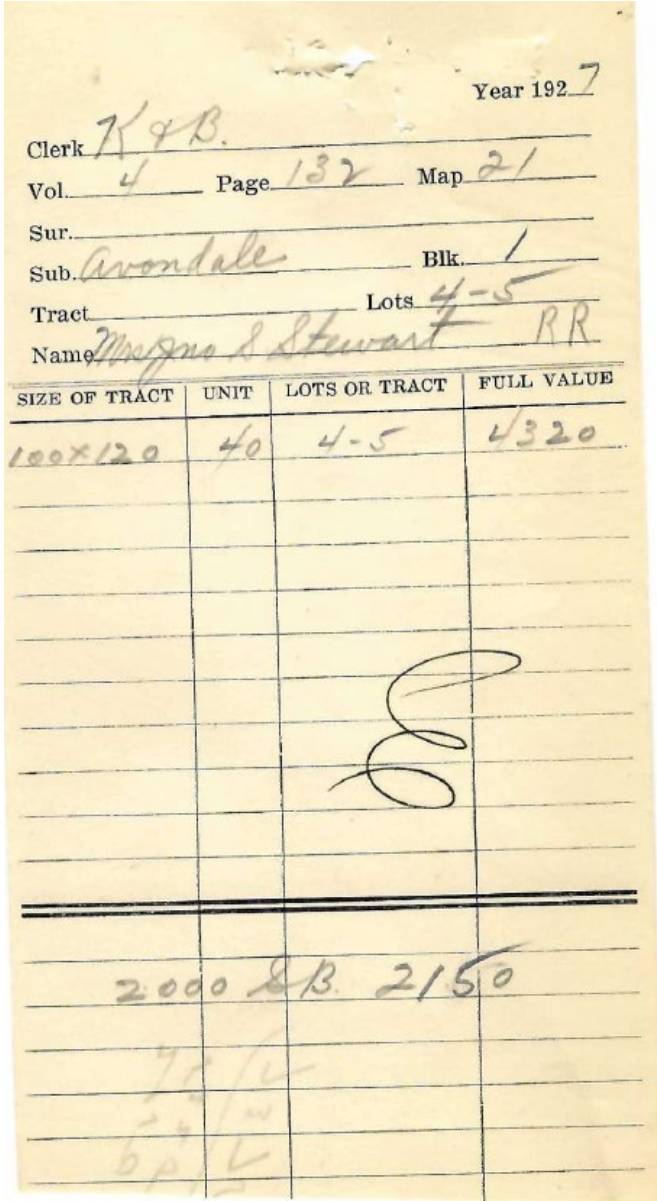 Year 1927
Clerk K & B.
Vol. 4 Page 132 Map 21
Sur.
Sub. Avondale Blk. 1
Tract Lots 4-5
Name Mrs Jno S Stewart RR
SIZE OF TRACT UNIT LOTS OR TRACT FULL VALUE
100x120 40 4-5 4320
2000 SB. 2150